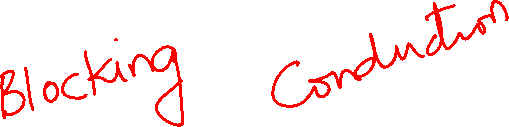 Blocking Conduction